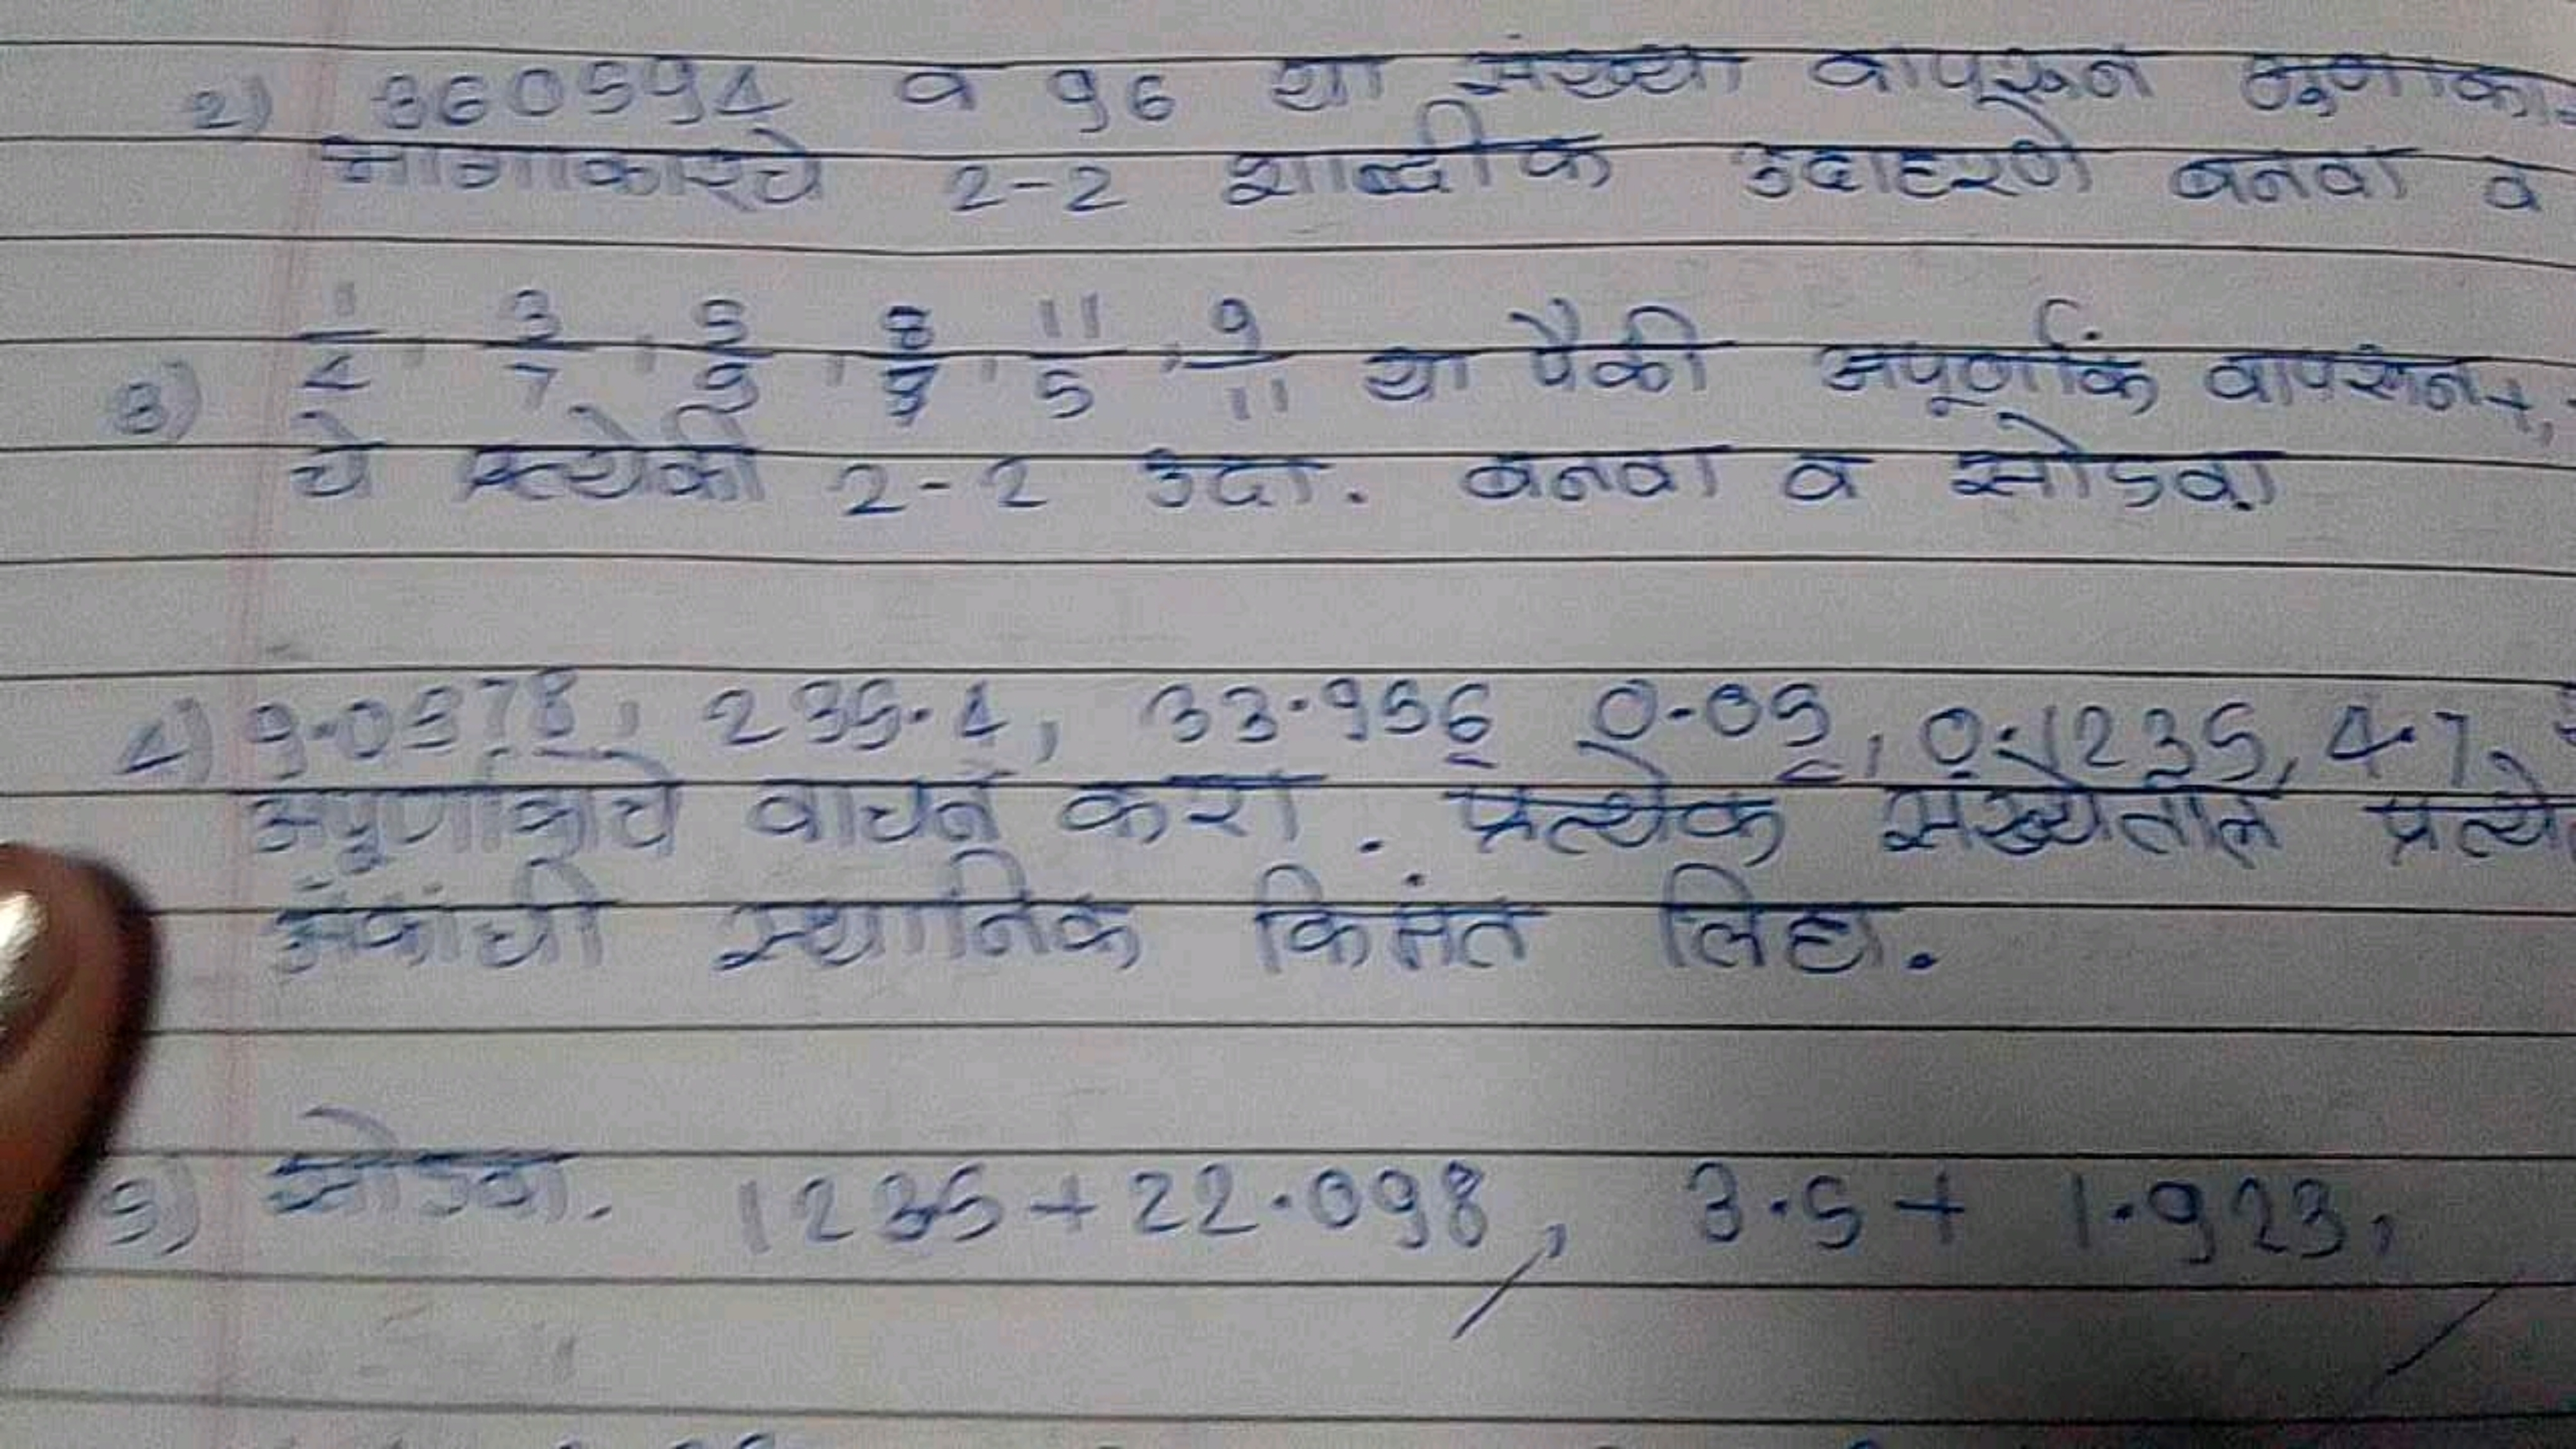 2) 360594 व 96 या संख्या वापरून गुणाका
भागाकारचे 2-2 शाब्दीक उदाहरणे बनवा व
3) 1/4, 3/7, 5/9, 8/9, 11/5, 9/11 या पैकी अपूर्णांक वापरून +,
चे प्रत्येकी 2-2 उदा. बनवा व सोडवा
4) 9.0578, 235.4, 33.956 0.05, 0.1235, 4.7,
अपुर्णांकाचे वाचन करा. प्रत्येक संख्येतील प्रत्ये
अंकांची स्थानिक किमंत लिहा.
5) सोडवा. 1235+22.098, 3.5+ 1.923,